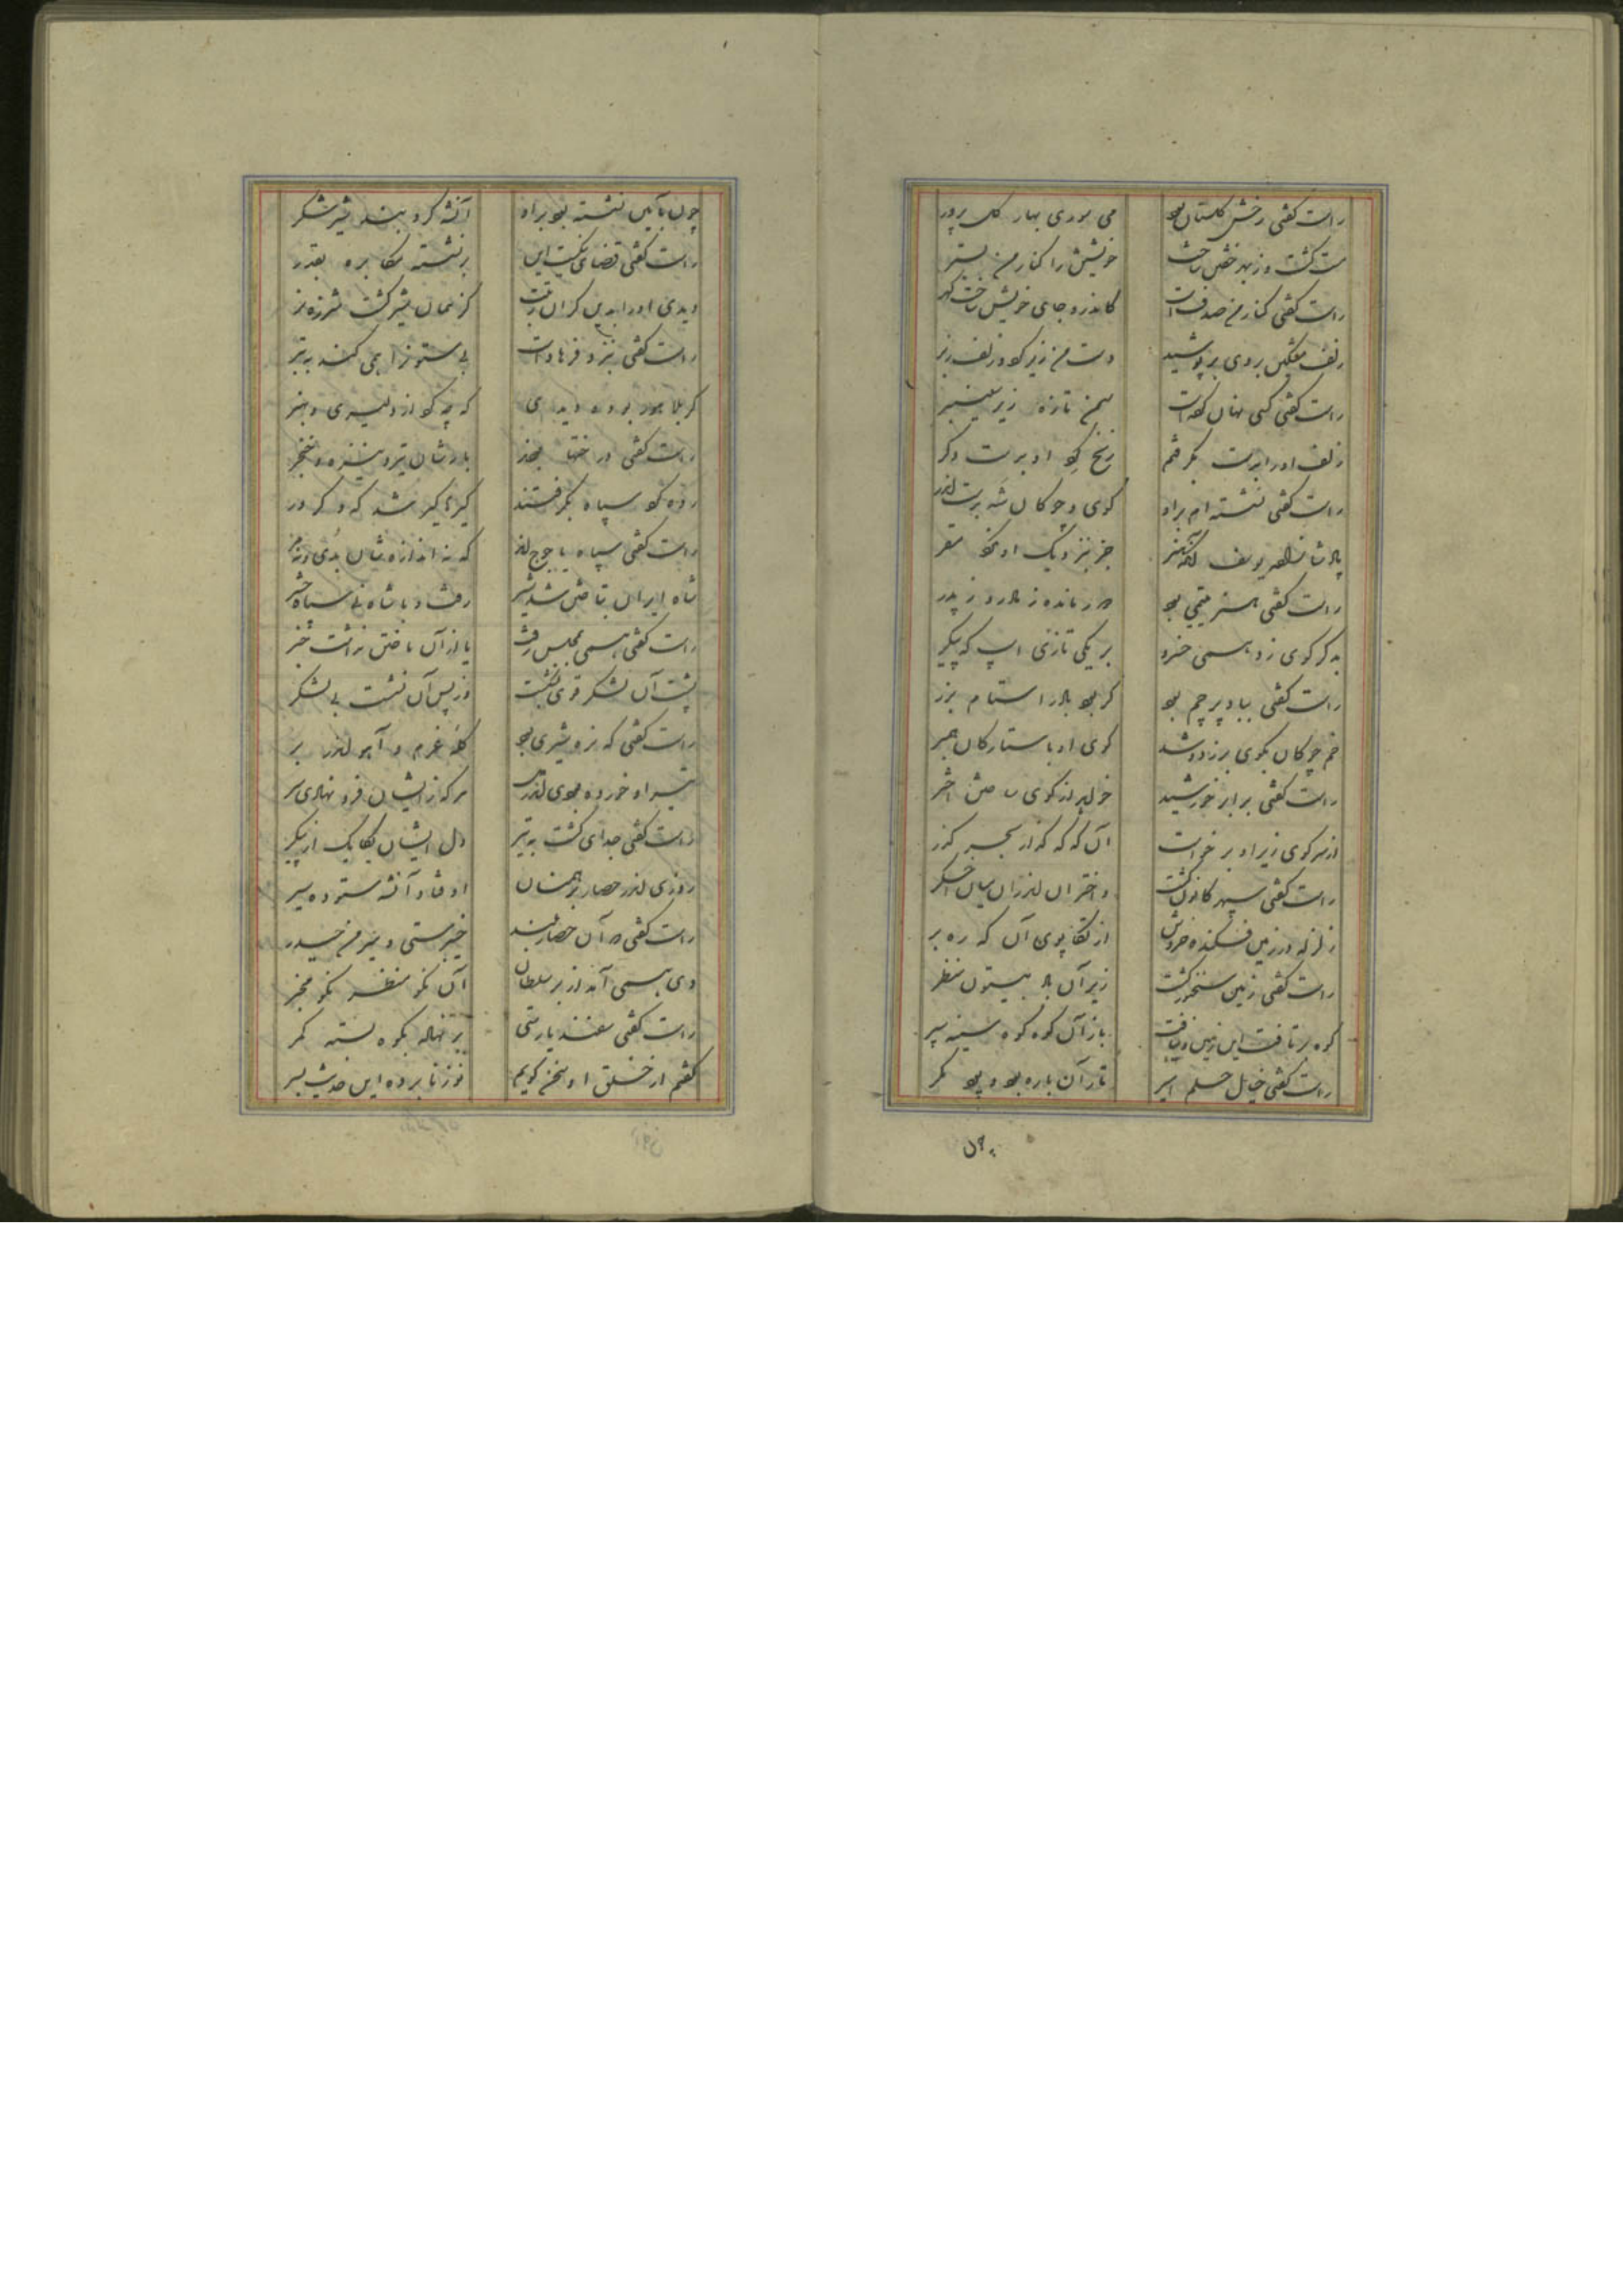 راست گفتی رخش گلستان بود می سوری بهار گل پرور
مست گشت و ز بهر خفتن ساخت خویشتن را کنار من بستر
راست گفتی کنار من صدفست کاندرو جای خویش ساخت گهر
زلف مشکین بروی بر پوشید دست من زیر کرد و زلف زبر
راست گفتی کسی نهان کردست سمن تازه زیر سیسنبر
زلف او را بدست بگرفتم زنخ گرد او بدست دگر
راست گفتی نشسته‌ام بر او گوی و چوگان شه بدست اندر
پادشا زاده یوسف آنکه هنر جز بنزدیک او نکرد مقر
راست گفتی هنر یتیمی بود در مانده ز مادر و ز پدر
به کرکوی زد همی خسرو بر یکی تازی اسپ که پیکر
راست گفتی بباد بر جم بود گر بود باد را ستام بزر
خم چوگان بگوی بر زد و شد گوی او با ستارگان همبر
راست گفتی برابر خورشید خواهد از گوی ساختن اختر
از سر گوی زیر او برخاست آن که که گذار بحر گذر
راست گفتی سپهر کانون گشت واختران اندران میان اخگر
زلزله در زمین فکنده خروش از تکاپوی آن که ره بر
راست گفتی زمین سخنور گشت زیر آن باد بیستون منظر
کوه برتافت این زمین و نیافت باز آن کوه کوه سینه سپر
راست گفتی خیال حلم امیر تار آن باره بود و پود کمر
چون بآیین نشسته بود بر او آن شه گرد بند شیر شکر
راست گفتی قضای نیکست این برنشسته مکابره بقدر
دیدی او را بدین گران رتبت کز نمان شیر گشت شرزه نر
راست گفتی بنزد فرهادست بیستون را همی کند به تبر
کرگ را بدو دیدی که چه کرد از دلیری و هنر
راست گفتی درختها بودند بارشان تیر و نیزه و خنجر
رده گرد سپاه بگرفتند گیرگیر شد که و کردر
راست گفتی سپاه یاجوجند که نه اندازه شان بدی و نه مر
شاه ایران بتاختن شد تیز رفت و با شاه نی سپاه و حشر
راست گفتی همی بمجلس رفت یا از آن تاختن نداشت خبر
پشت آن لشکر قوی بشکست وز پس آن نشست بی لشکر
راست گفتی که نره شیری بود گلهٔ غرم و آهو اندر بر
تیر او خورده بودی اندر دل هر که ز ایشان فرو نهادی سر
راست گفتی جدای گشت به تیر دل ایشان یکایک از پیکر
روزی اندر حصار برهمنان اوفتاد آن شه ستوده سیر
راست گفتی در آن حصار بلند خیبرستی و میر من حیدر
دی همی آمد از بر سلطان آن نکو منظر نکو مخبر
راست گفتی سفندیارستی بر نهاله بکوه بسته کمر
گفتم از خلق او سخن گویم نوز نابرده این حدیث بسر